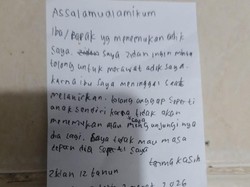 Assalamualaimkum
Ibu/Bapak yg menemukan adik
saya saya Zidan ingin minta
tolong untuk merawat adik saya.
karna ibu saya meninggal saat
melahirkan. tolong anggap seperti
anak sendiri karna tidak akan
menemukan atau saya mengunjungi nya
da lagi. saya tidak mau masa
depan dia seperti saya
terima kasih
Zidan 12 tahun
maret 2026